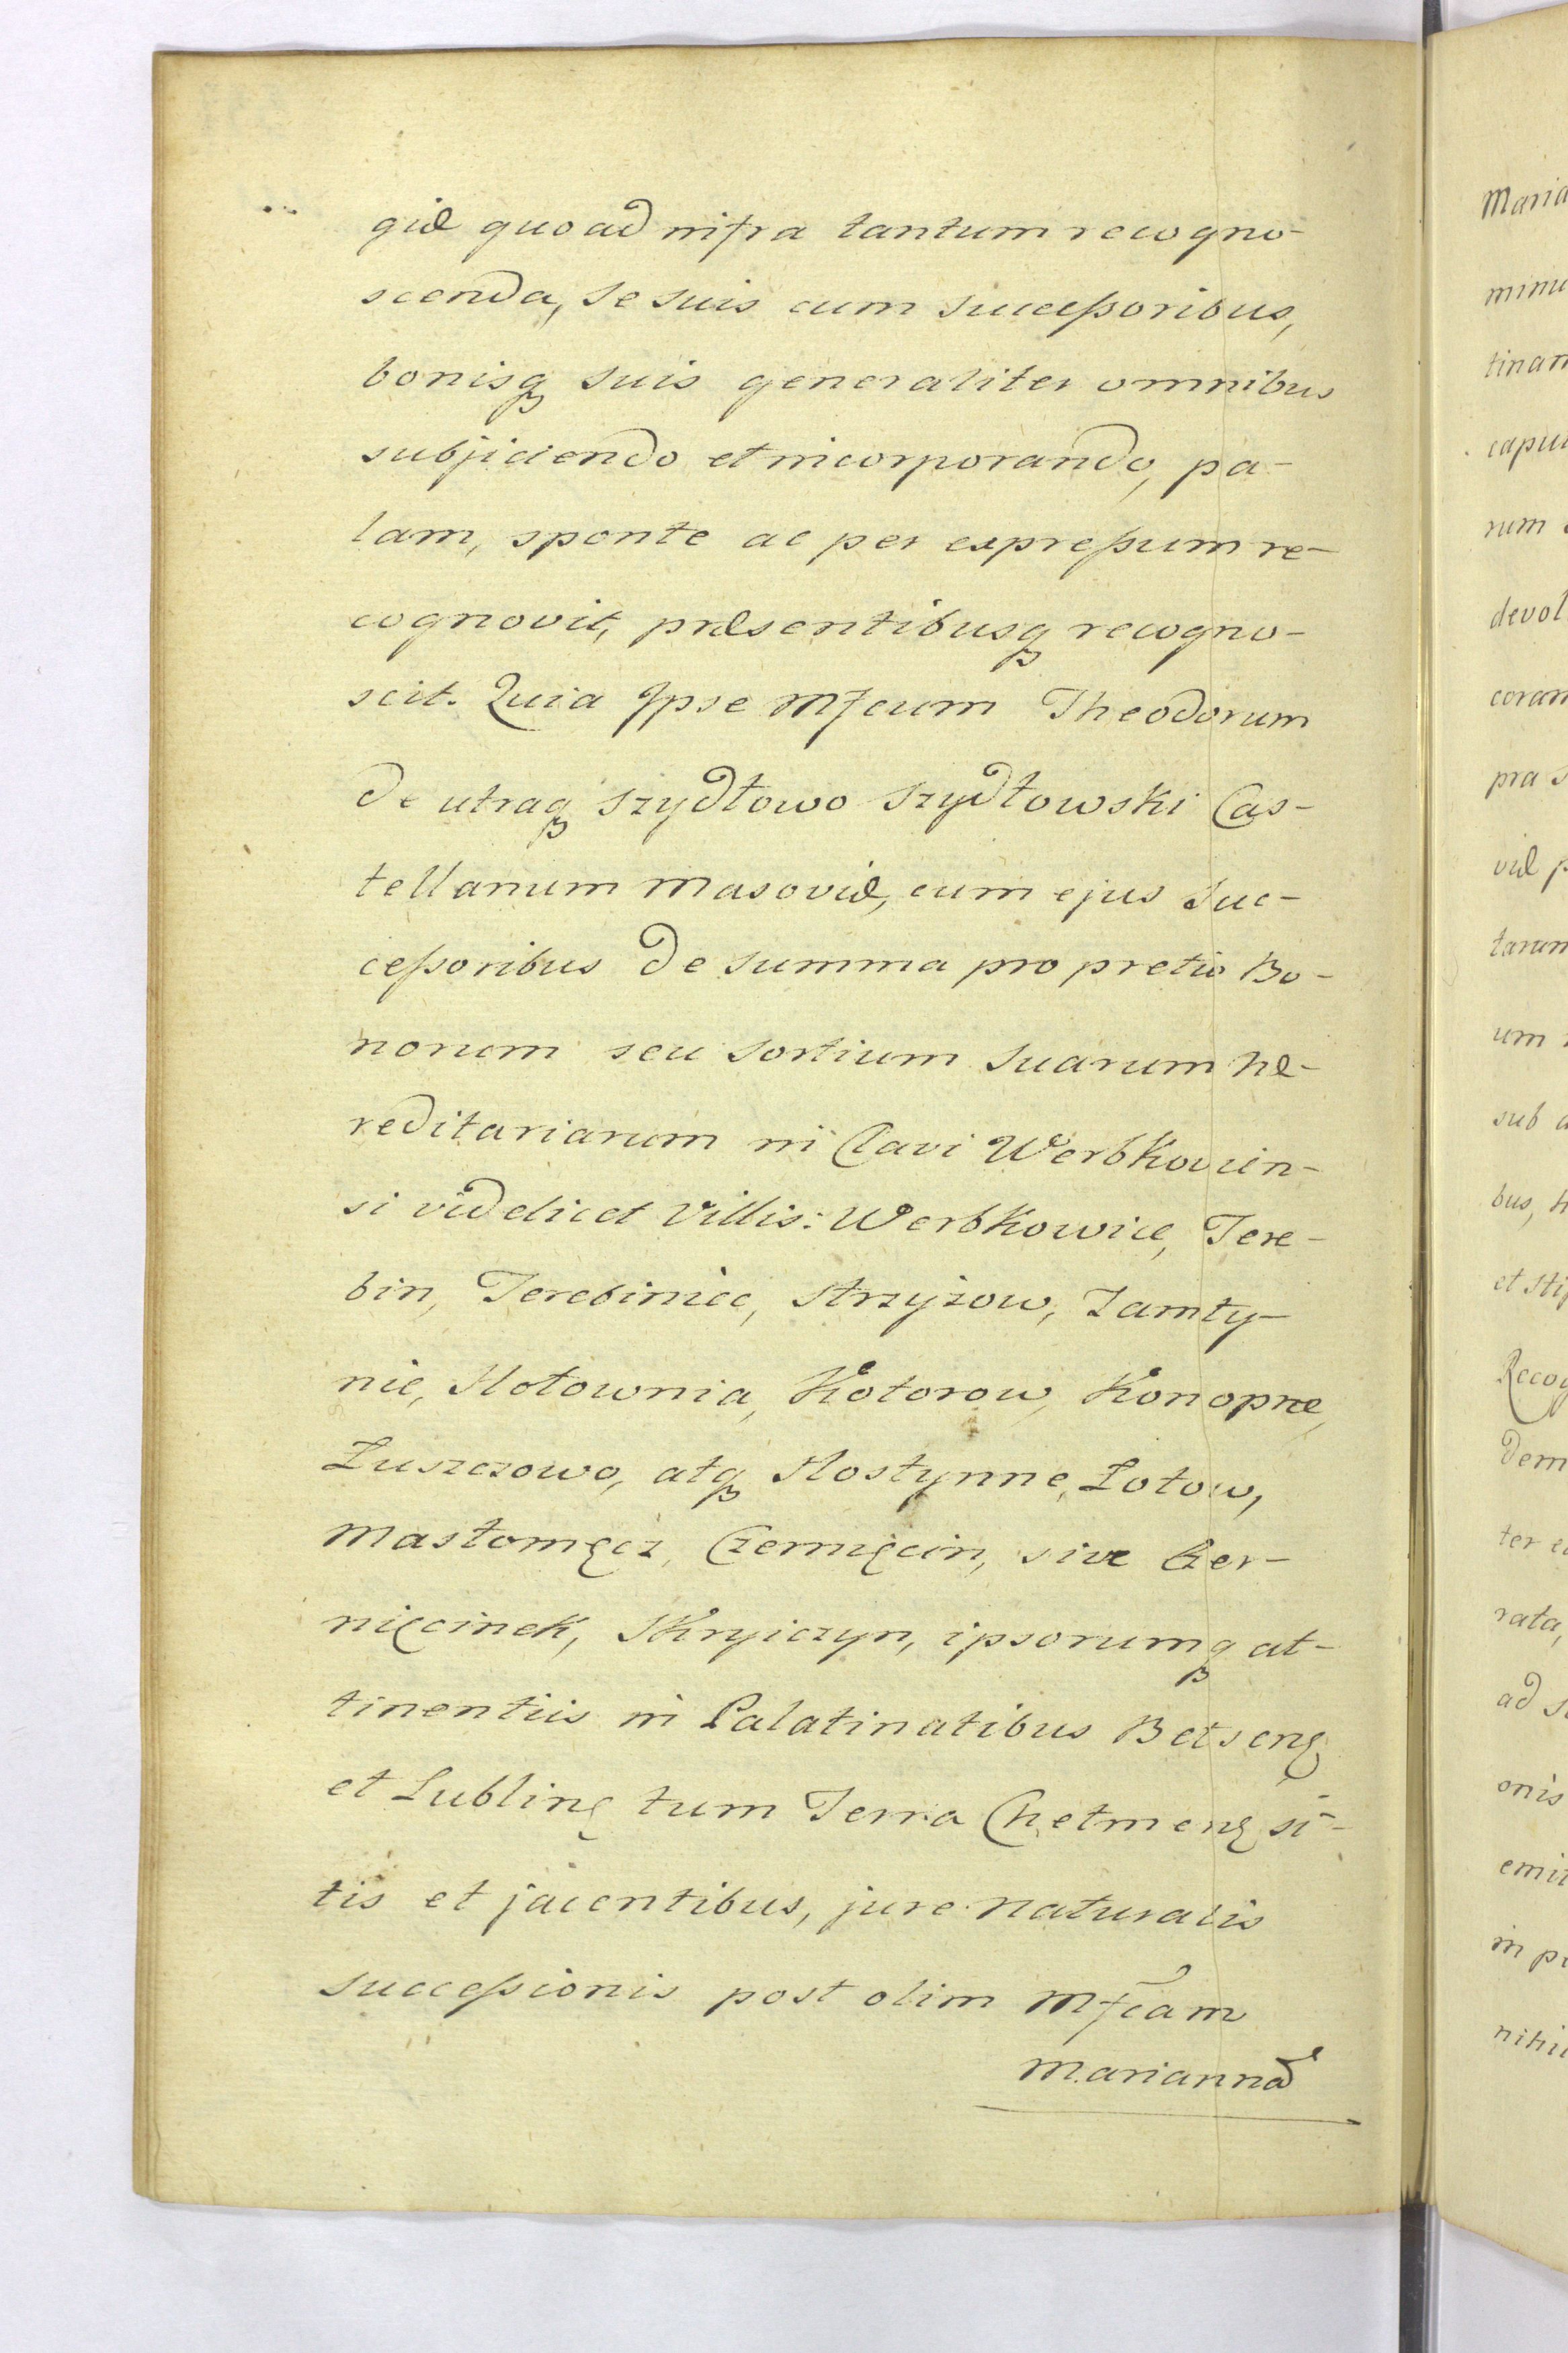 giæ quoad infra tantum recogno-
scenda, se suis cum successoribus,
bonisq suis generaliter omnibus
subjiciendo et incorporando, pa-
lam, sponte ac per expressum re-
cognovit, præsentibusq recogno-
scit. Quia Ipse Mfcum Theodorum
de utraq Szydłowo Szydłowski Cas-
tellanum Masoviæ, cum ejus suc-
cessoribus de summa pro pretio Bo-
norum seu sortium suarum hæ-
reditariarum in Clavi Werbkovien-
si videlicet Villis: Werbkowice, Tere-
bin, Terebiniec, Strzyżow, Zamły-
nie, Hołownia, Kotorow, Konopne,
Łuszczowo, atq Hostynne, Łotow,
Masłomęcz, Czernięcin, sive Czer-
nięcinek, Skryiczyn, ipsorumq at-
tinentiis in Palatinatibus Bełsenę
et Lublinę tum Terra Chełmenę si-
tis et jacentibus, jure naturalis
successionis post olim Mfcam
Mariannā
Maria
minu
tinam
capu
rum
devol
coram
pra s
viæ p
tarum
um
sub a
bus, h
et sti
Recog
dem
ter e
rata,
ad s
onis
emi
in p
nihi